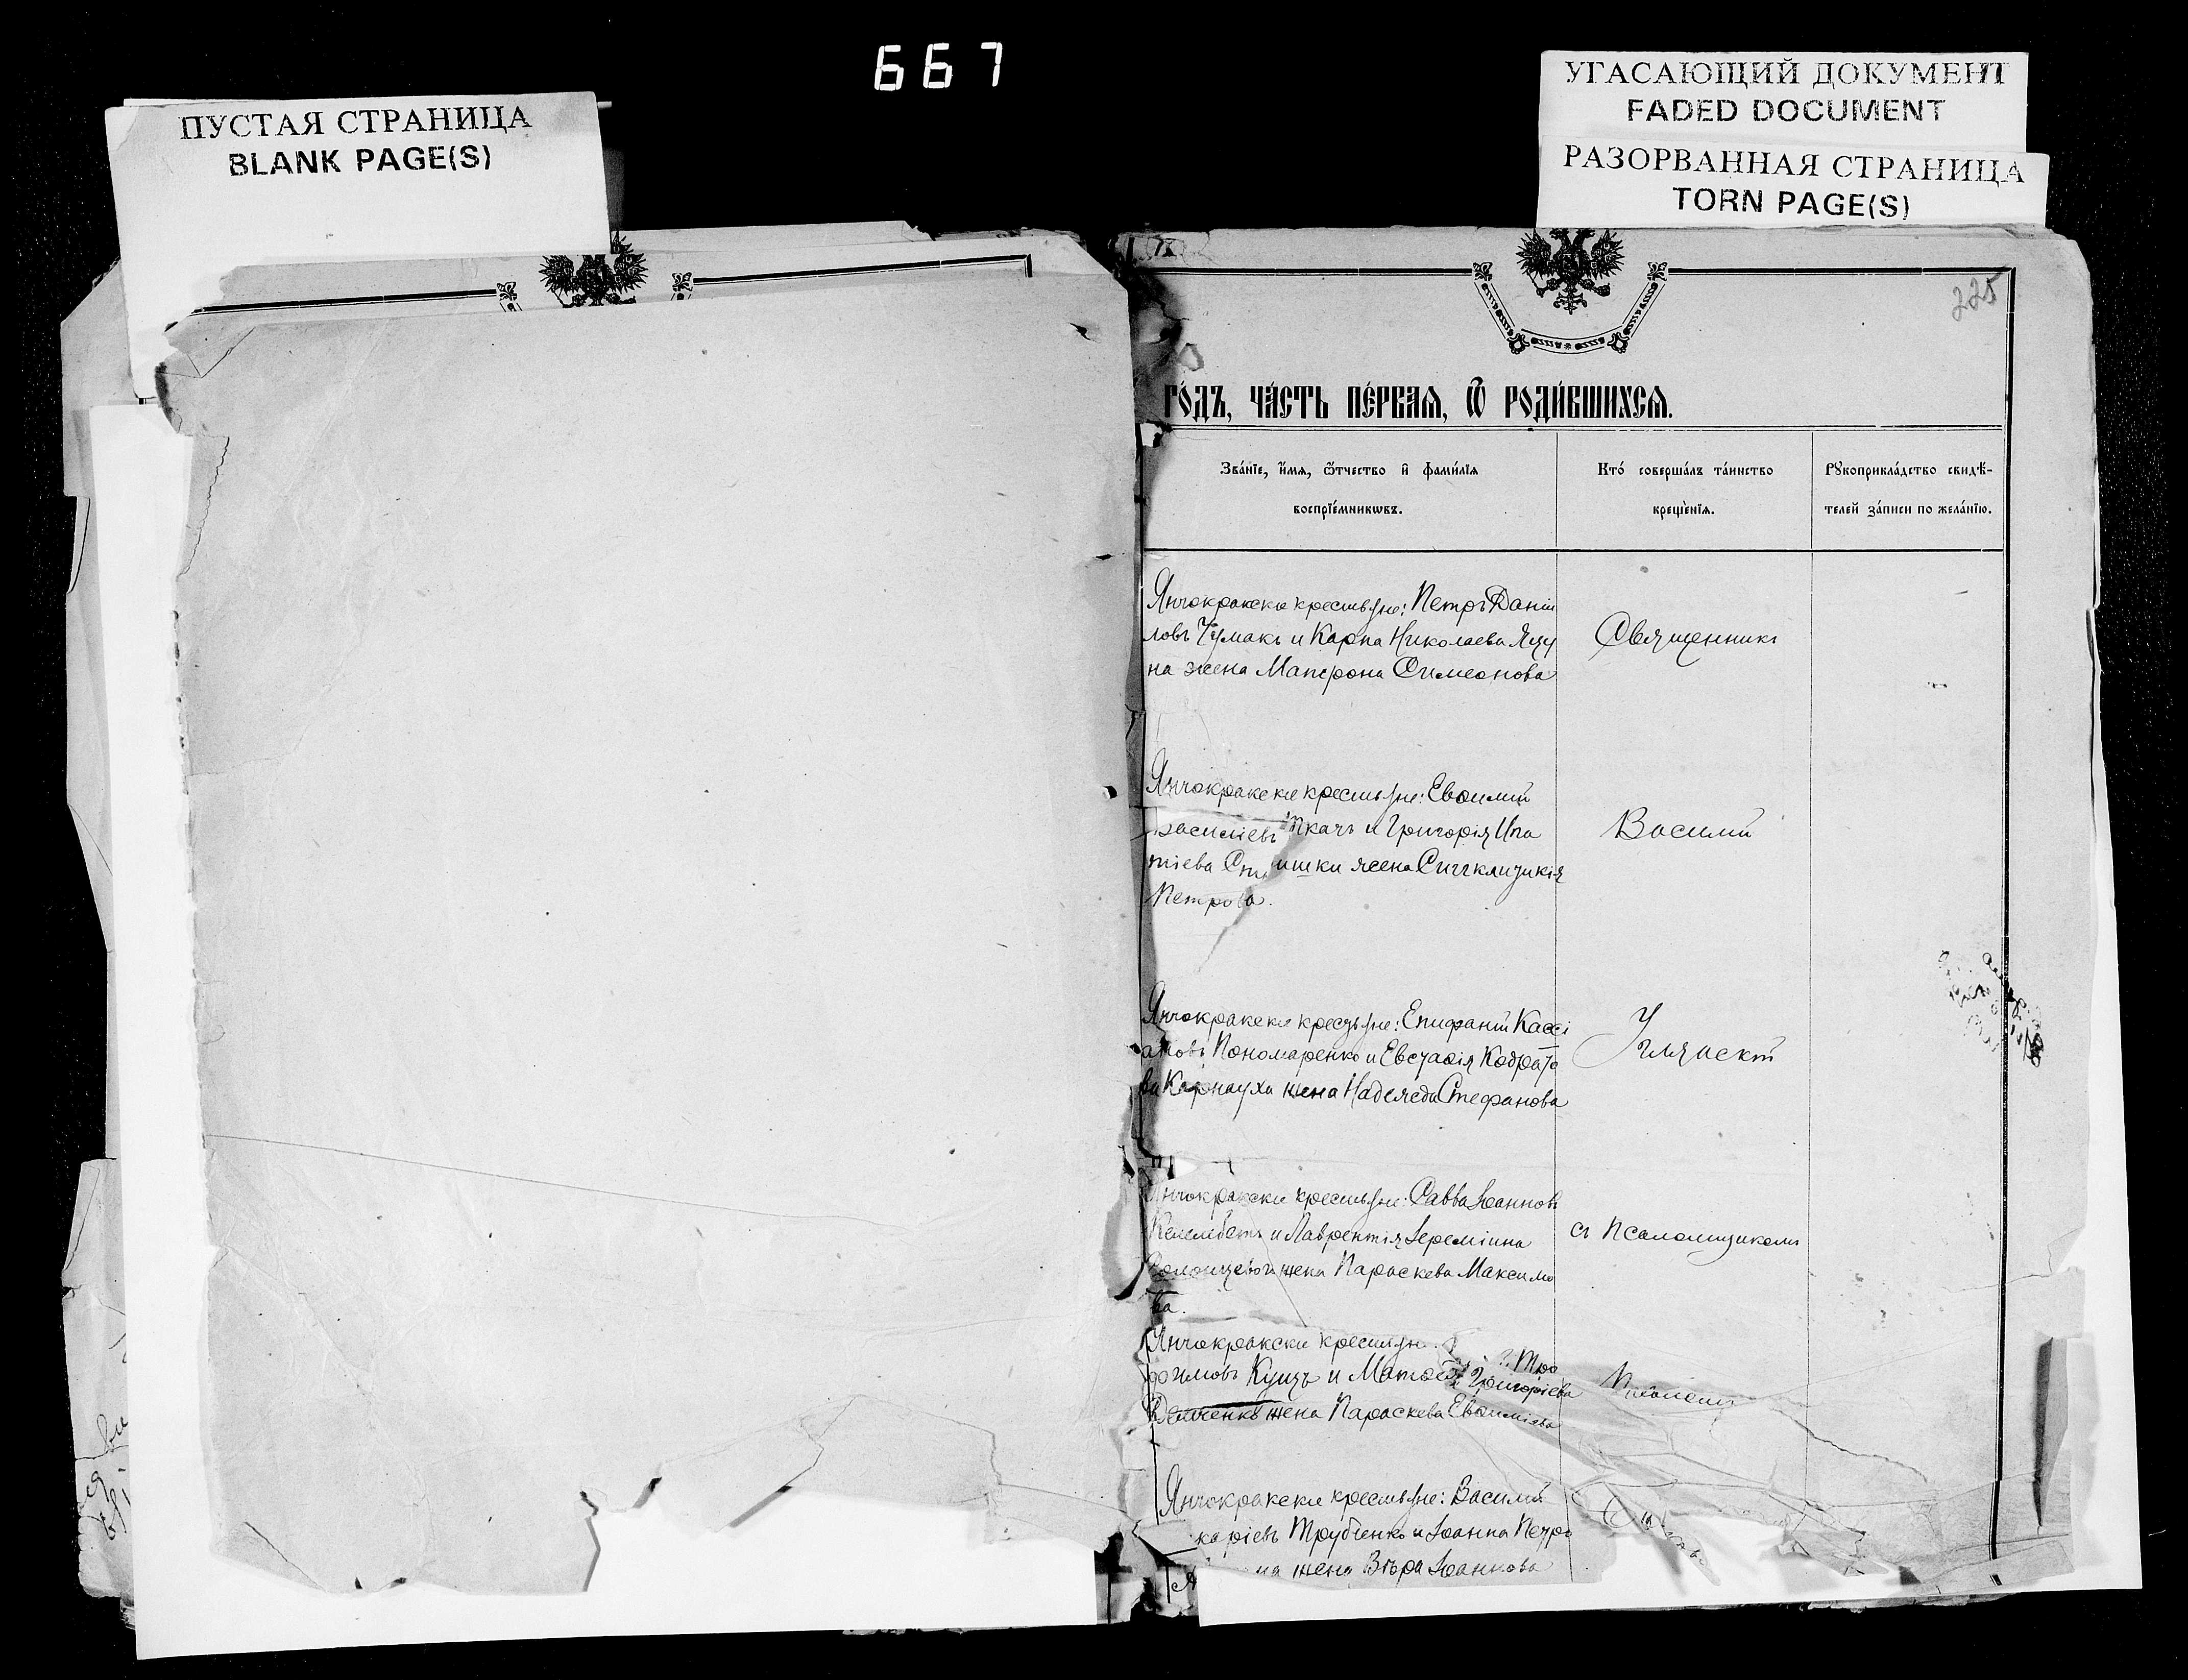 667
ПУСТАЯ СТРАНИЦА
BLANK PAGE(S)
УГАСАЮЩИЙ ДОКУМЕНТ
FADED DOCUMENT
РАЗОРВАННАЯ СТРАНИЦА
TORN PAGE(S)
225
го́дъ, ча́сть пе́рваѧ, ѿ роди́вшихсѧ.
Зва́нїе, и҆́мѧ, ѻ҆́тчество и҆ фами́лїѧ
воспрїе́мникѡвъ.
Кто́ соверша́лъ та́инство
креще́нїѧ.
Рꙋкоприкла́дство свидѣ́-
телей за́писи по жела́нїю.
Янчокракскіе крестьяне: Петръ Даніи
ловъ Чумакъ и Карпа Николаева Яцу
на жена Матрона Симеонова
Священникъ
Янчокракскіе крестьяне: Евѳимій
Василіевъ Ткачъ и Григорія Ипа
тіева жена Сигклитикія
Петрова.
Василій
Янчокракскіе крестьяне: Епифаній Кассі
ановъ Пономаренко и Евстафія Кодрато
ва Карнауха жена Надежда Стефанова
Янчокракскіе крестьяне: Савва Іоанновъ
Келембетъ и Лаврентія Іереміина
жена Параскева Максимо
ва.
съ псаломщикомъ
Янчокракскіе крестьяне: Тро
фимовъ Куцъ и Матѳея Григоріева
жена Параскева Евѳиміева
Янчокракскіе крестьяне: Василій
каріевъ Трубченко и Іоанна Петро
на жена Вѣра Іоаннова